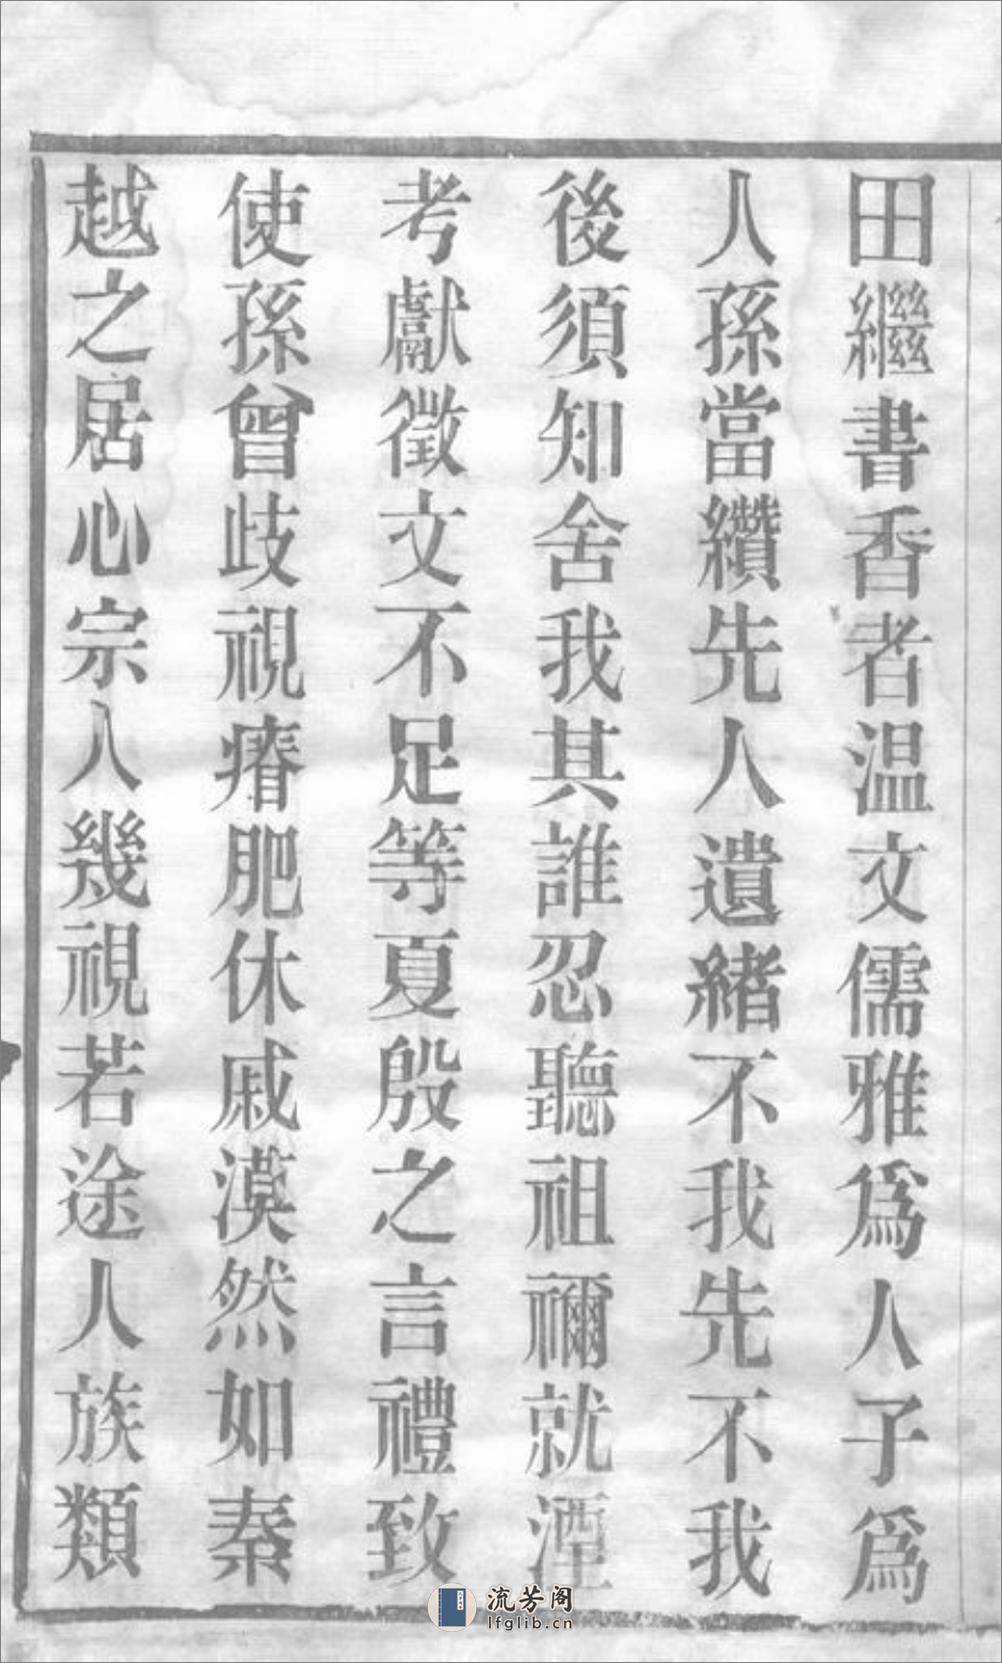 田繼書香者温文儒雅爲人子爲
人孫當纘先人遺緖不我先不我
後須知舍我其誰忍聽祖禰就湮
考獻徵文不足等夏殷之言禮致
使孫曾歧視瘠肥休戚漠然如秦
越之居心宗人幾視若途人族類
流芳阁
lfglib.cn